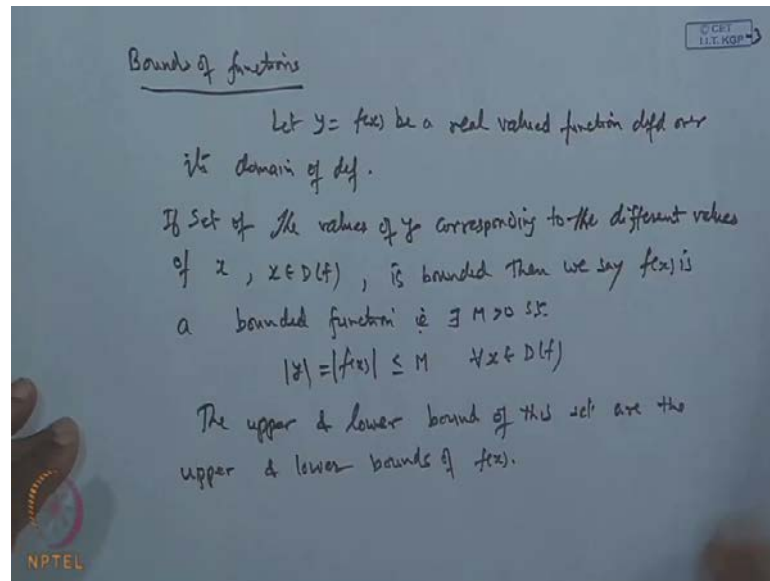 © CET
I.I.T. KGP
Bounds of functions
Let y = f(x) be a real valued function defd over
its domain of def.
If Set of the values of y corresponding to the different values
of x, x ∈ D(f), is bounded then we say f(x) is
a bounded function ie ∃ M > 0 s.t.
|y| = |f(x)| ≤ M ∀ x ∈ D(f)
The upper & lower bound of this set are the
upper & lower bounds of f(x).
NPTEL